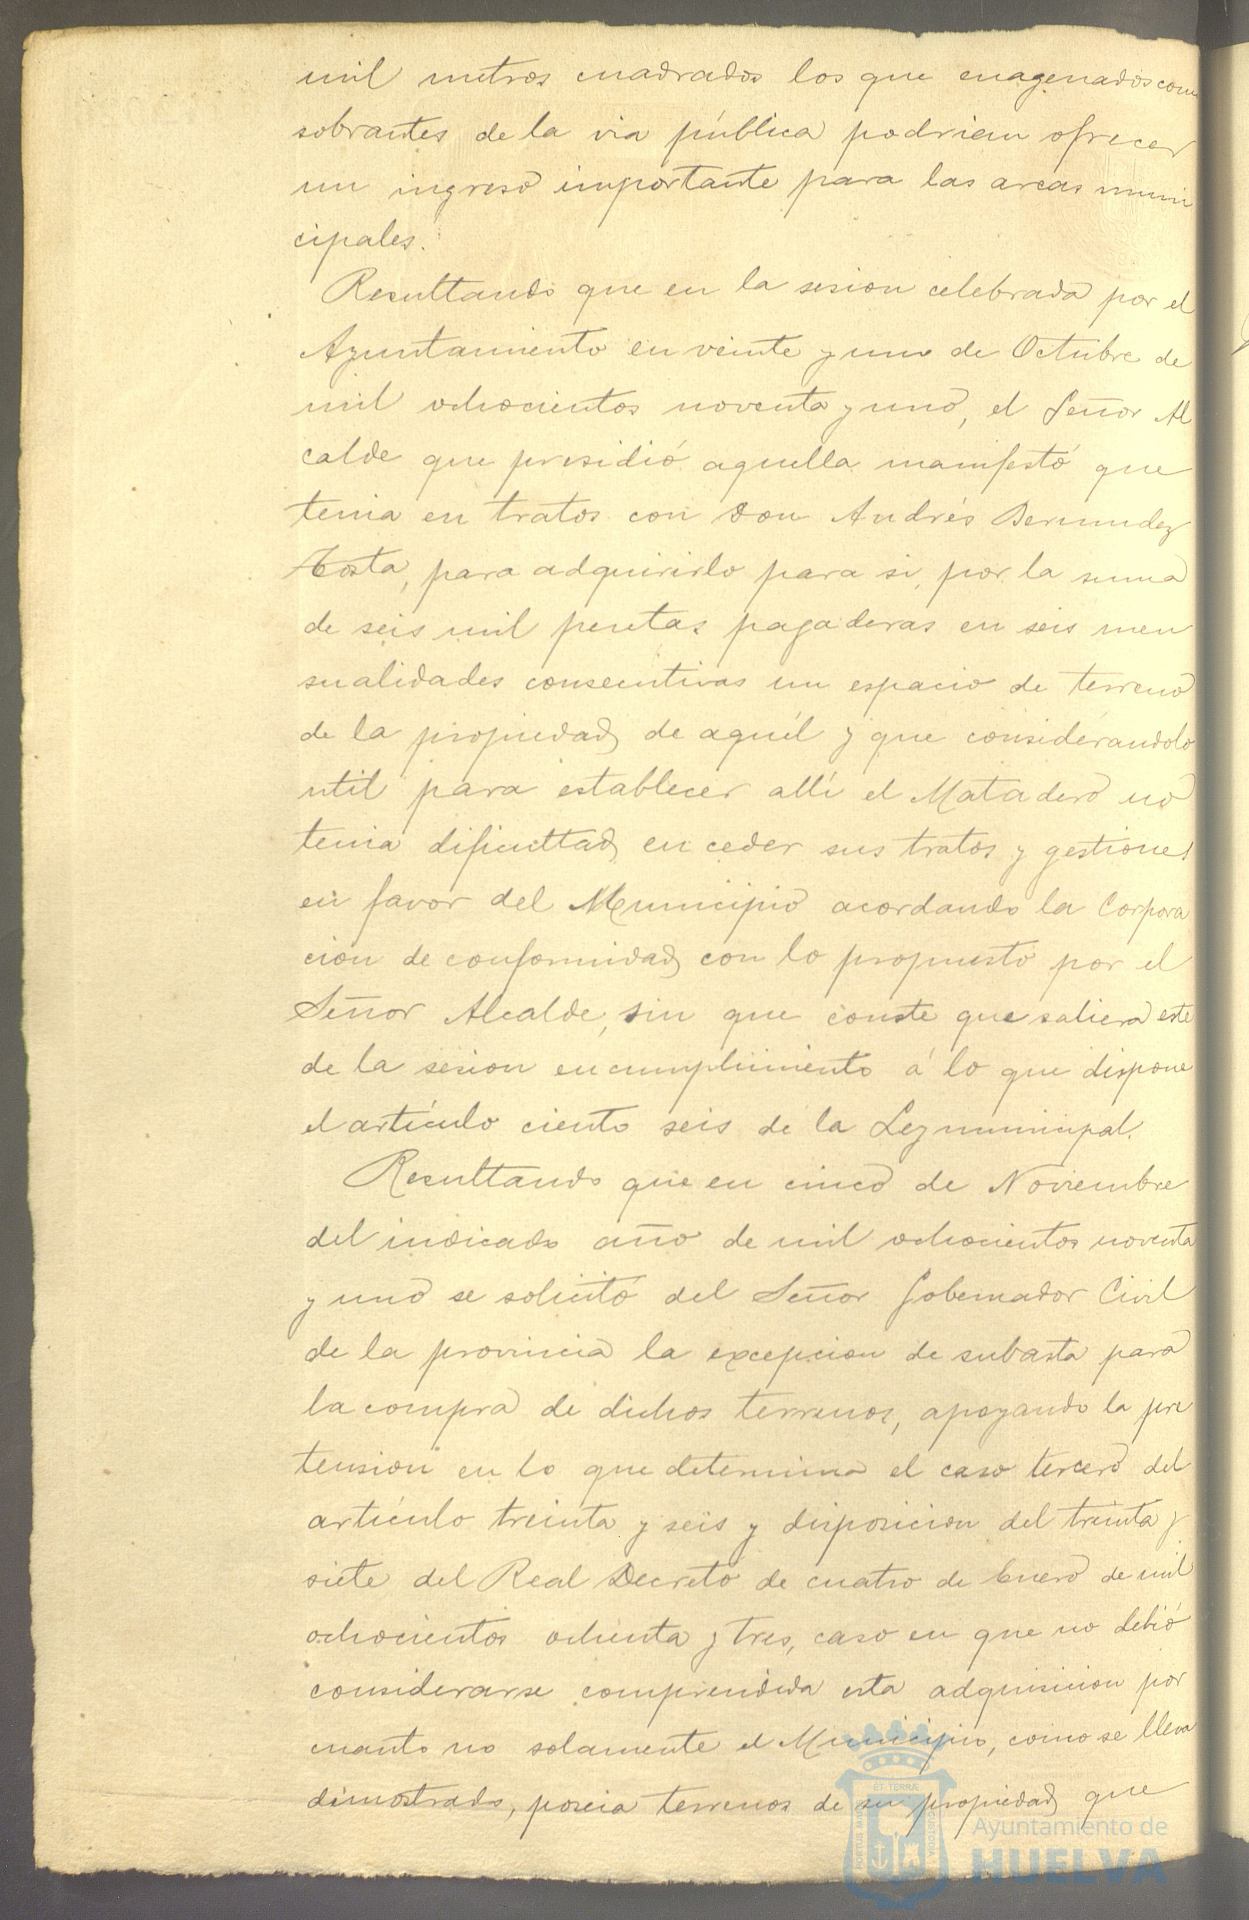 mil metros cuadrados los que enagenados como
sobrantes de la via pública podrian ofrecer
un ingreso importante para las arcas muni
cipales.
Resultando que en la sesion celebrada por el
Ayuntamiento en veinte y uno de Octubre de
mil ochocientos noventa y uno, el Señor Al
calde que presidió aquella manifestó que
tenia en tratos con Don Andrés Bermudez
Tosta, para adquirirlo para si, por la suma
de seis mil pesetas pagaderas en seis men
sualidades consecutivas un espacio de terreno
de la propiedad de aquél y que considerandolo
util para establecer allí el Matadero no
tenia dificultad en ceder sus tratos y gestiones
en favor del Municipio acordando la Corpora
cion de conformidad con lo propuesto por el
Señor Alcalde, sin que conste que saliera este
de la sesion en cumplimiento á lo que dispone
el artículo ciento seis de la Ley municipal.
Resultando que en cinco de Noviembre
del indicado año de mil ochocientos noventa
y uno se solicitó del Señor Gobernador Civil
de la provincia la excepcion de subasta para
la compra de dichos terrenos, apoyando la pre
tension en lo que determina el caso tercero del
artículo treinta y seis y disposicion del treinta y
siete del Real Decreto de cuatro de Enero de mil
ochocientos ochenta y tres, caso en que no debió
considerarse comprendida esta adquisicion por
cuanto no solamente el Municipio, como se lleva
demostrado, poseia terrenos de su propiedad que
ET TERRÆ
PORTUS MARIS
CUSTODIA
Ayuntamiento de
HUELVA